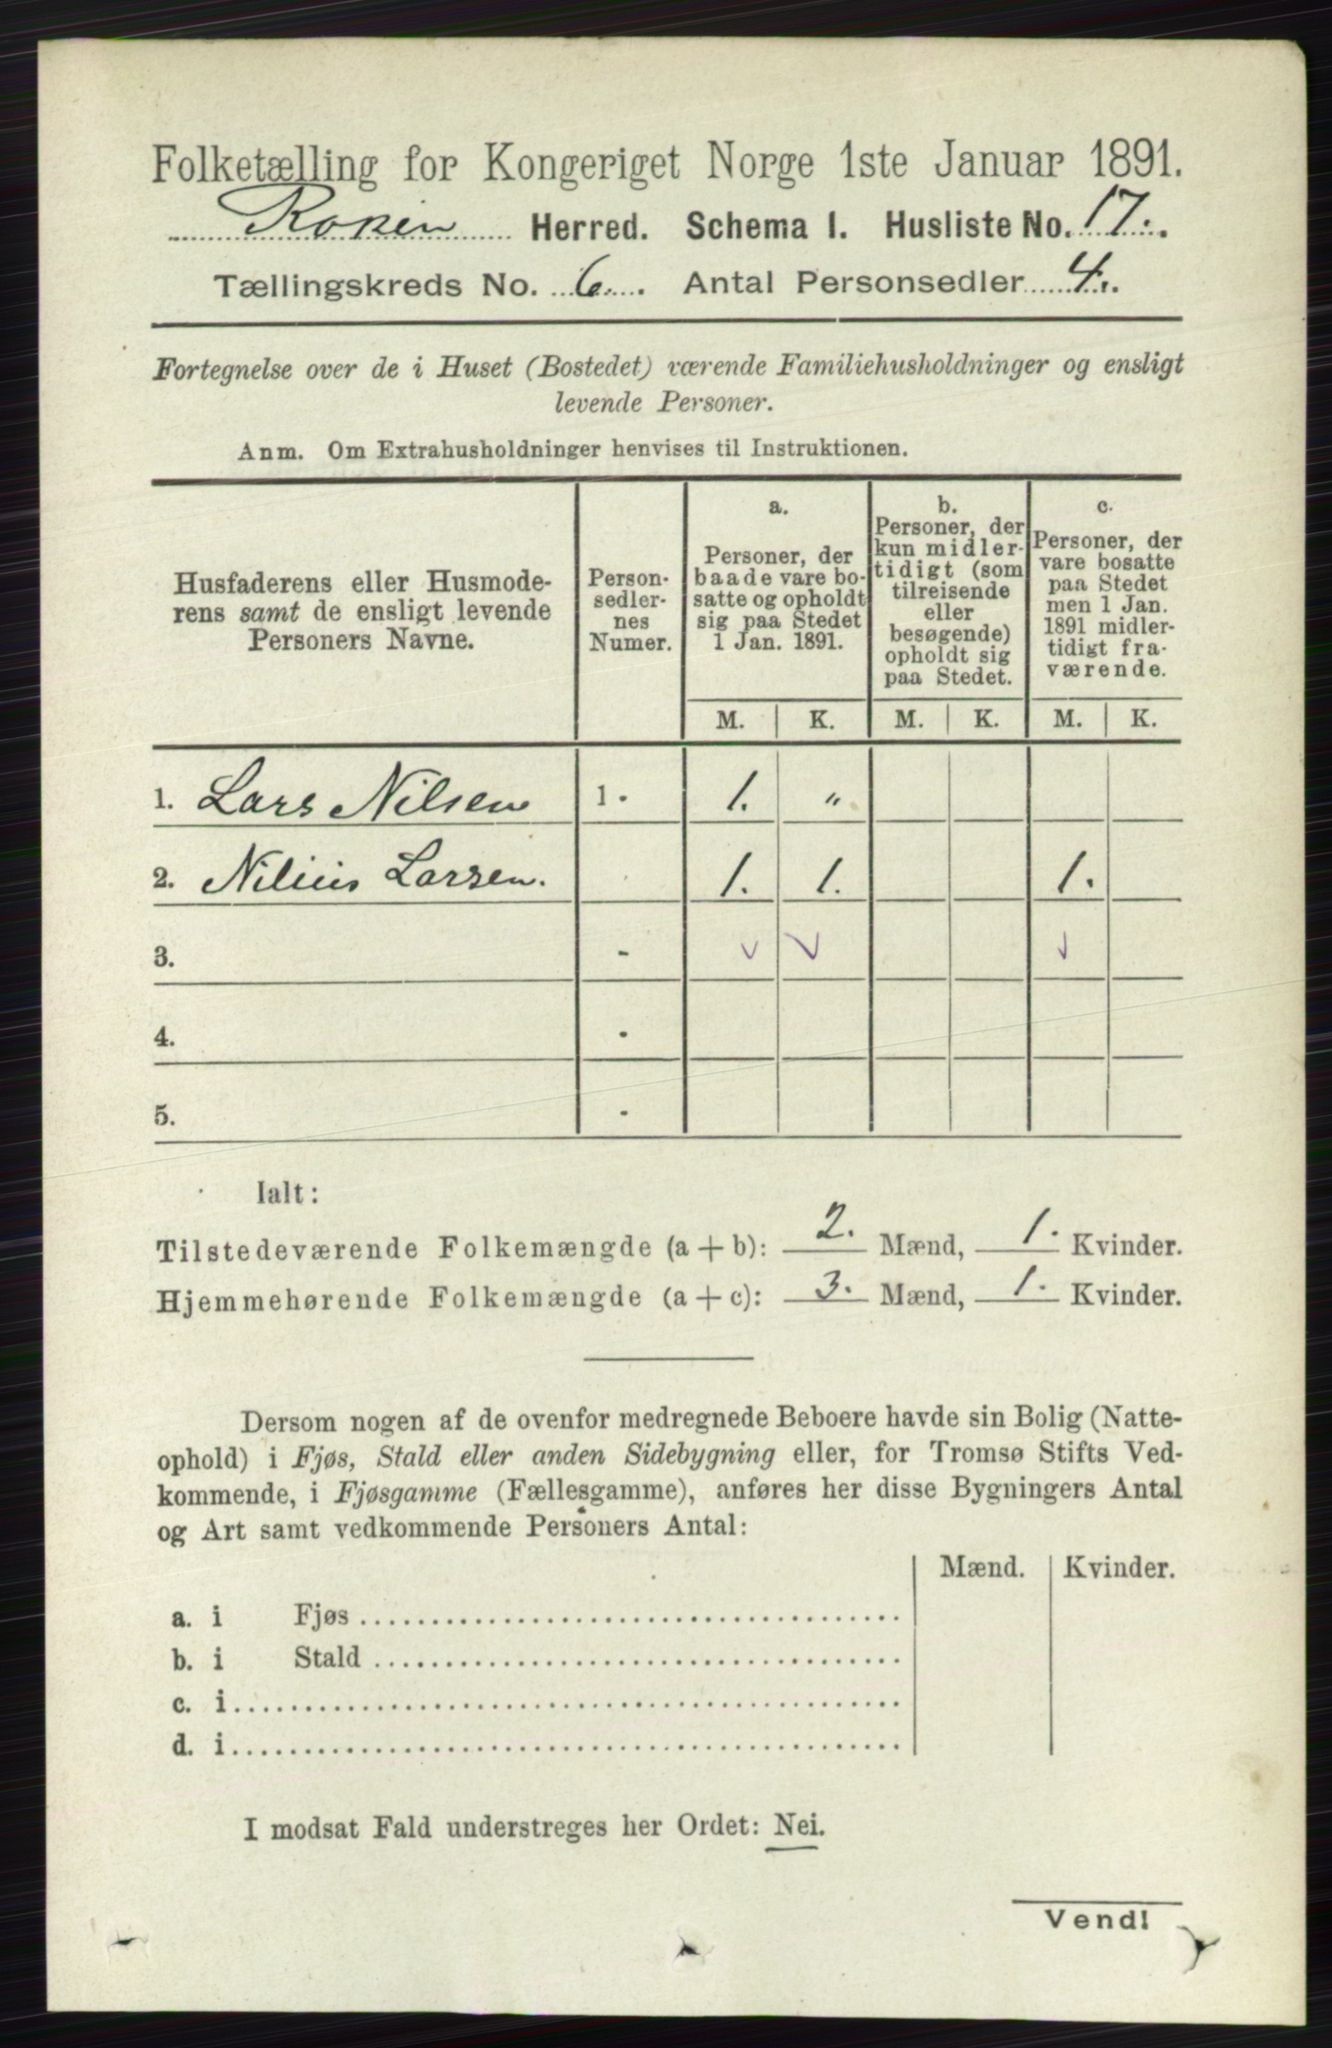 Folketælling for Kongeriget Norge 1ste Januar 1891.
Røken Herred. Schema I. Husliste No. 17.
Tællingskreds No. 6. Antal Personsedler 4.
Fortegnelse over de i Huset (Bostedet) værende Familiehusholdninger og ensligt
levende Personer.
Anm. Om Extrahusholdninger henvises til Instruktionen.
Husfaderens eller Husmode-
rens samt de ensligt levende
Personers Navne.
Person-
sedler-
nes
Numer.
a.
Personer, der
baade vare bo-
satte og opholdt
sig paa Stedet
1 Jan. 1891.
b.
Personer, der
kun midler-
tidigt (som
tilreisende
eller
besøgende)
opholdt sig
paa Stedet.
c.
Personer, der
vare bosatte
paa Stedet
men 1 Jan.
1891 midler-
tidigt fra-
værende.
M. K. M. K. M. K.
1. Lars Nilsen 1. 1. "
2. Nilius Larsen. 1. 1. 1.
3.
4.
5.
Ialt:
Tilstedeværende Folkemængde (a + b): 2. Mænd, 1. Kvinder.
Hjemmehørende Folkemængde (a + c): 3. Mænd, 1. Kvinder.
Dersom nogen af de ovenfor medregnede Beboere havde sin Bolig (Natte-
ophold) i Fjøs, Stald eller anden Sidebygning eller, for Tromsø Stifts Ved-
kommende, i Fjøsgamme (Fællesgamme), anføres her disse Bygningers Antal
og Art samt vedkommende Personers Antal:
Mænd. Kvinder.
a. i Fjøs
b. i Stald
c. i
d. i
I modsat Fald understreges her Ordet: Nei.
Vend!